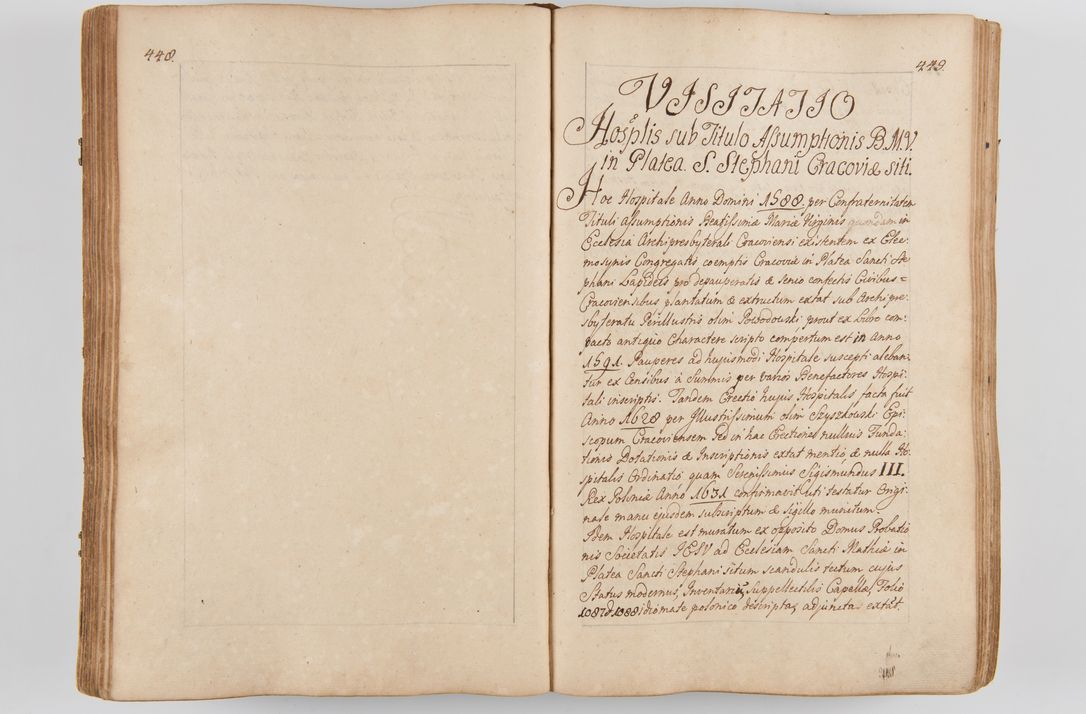 448.
449.
VISITATIO
Hosplis sub Titulo Assumptionis B.M.V.
in Platea. S. Stephani Cracoviæ siti.
Hoc Hospitale Anno Domini 1588. per Confraternitatem
Tituli Assumptionis Beatissimæ Mariæ Virginis quondam in
Ecclesia Archipresbyterali Cracoviensi existentem ex Elee:
mosynis Congregatis coemptis Cracoviæ in Platea Sancti Ste
phani Lapideis pro depauperatis & senio confectis Civibus=
Cracoviensibus plantatum & extructum extat sub Archipre:
sbyteratu Perillustris olim Powodowski prout ex Libro com:
pacto antiquo Charactere scripto compertum est in Anno
1591. Pauperes ad hujusmodi Hospitale suscepti aleban:
tur ex Censibus à Summis per varios Benefactores Hospi:
tali inscriptis. Tandem Erectio hujus Hospitalis facta fuit
Anno 1628 per Jllustrissimum olim Szyszkowski Epi:
scopum Cracoviensem sed in hac Erectione nullius Funda:
tionis Dotationis & Inscriptionis extat mentio & nulla Ho:
spitalis Ordinatio quam Serenissimus Sigismundus III.
Rex Poloniæ Anno 1631 confirmavit uti testatur Origi:
nale manu ejusdem subscriptum & Sigillo munitum.
Idem Hospitale est muratum ex opposito Domus Probatio
nis Societatis JESV ad Ecclesiam Sancti Mathiæ in
Platea Sancti Stephani situm scandulis tectum cujus
Status modernus, Inventariũ, Suppellectilis Capellæ, Folio
1087 & 1088 idiomate polonico descripta, adjuncta extãt.